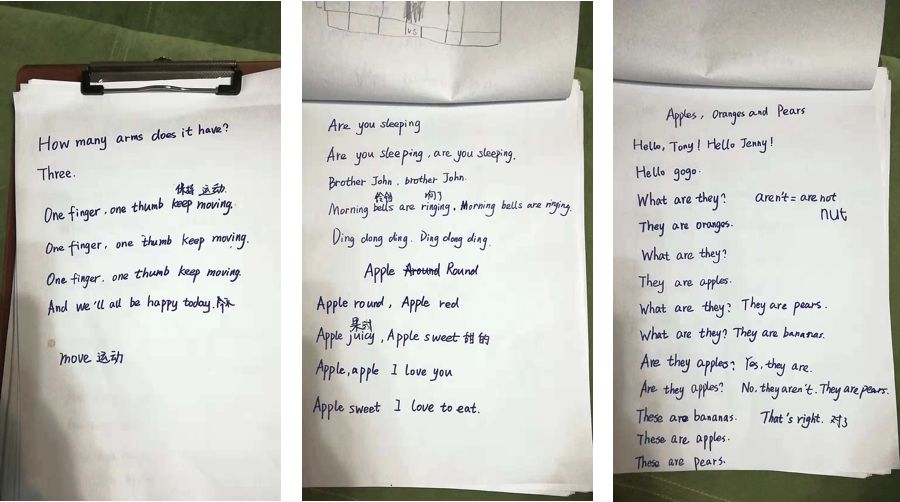 How many arms does it have?
Three.
保持 运动.
One finger, one thumb keep moving.
One finger, one thumb keep moving.
One finger, one thumb keep moving.
And we'll all be happy today.
move 运动
VS
Are you sleeping
Are you sleeping, are you sleeping.
Brother John, brother John.
响了
Morning bells are ringing, Morning bells are ringing.
Ding dong ding. Ding dong ding.
Apple Around Round
Apple round, Apple red
果汁
Apple juicy, Apple sweet 甜的
Apple, apple I love you
Apple sweet I love to eat.
Apples, Oranges and Pears
Hello, Tony! Hello Jenny!
Hello gogo.
What are they? aren't = are not
nut
They are oranges.
What are they?
They are apples.
What are they? They are pears.
What are they? They are bananas.
Are they apples? Yes, they are.
Are they apples? No, they aren't. They are pears.
These are bananas. That's right. 对了
These are apples.
These are pears.